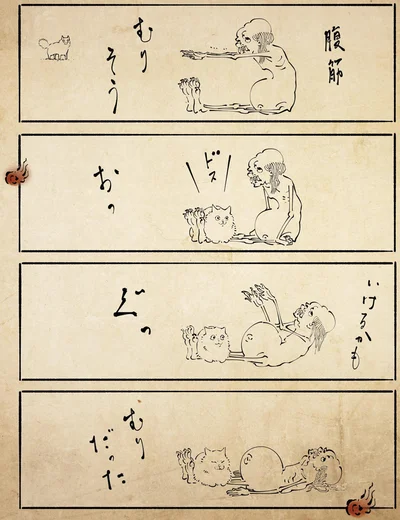 腹筋
むり
そう
ドスッ
おっ
いけるかも
ぐっ
むり
だった